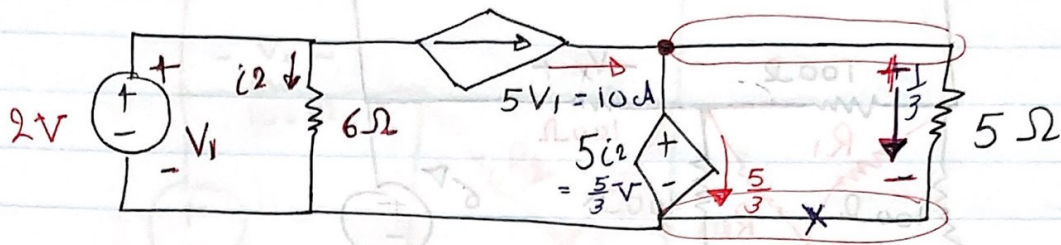 +
2V
+
-
V₁
-
i2 ↓
6Ω
5V₁ = 10A
5i2
= 5/3 V
+
-
5/3
+
1/3
-
5 Ω
x